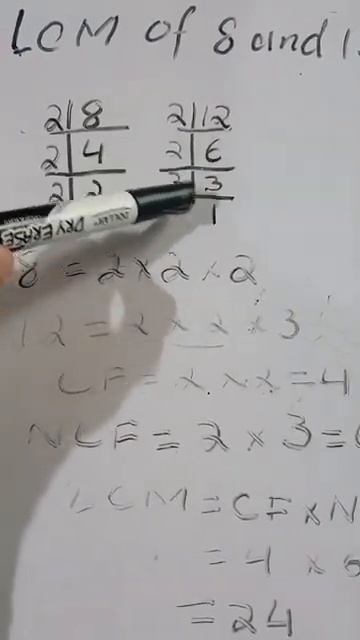 LCM of 8 and 1
2 8 2 12
2 4 2 6
2 2 3
1
DRY ERASE
8 = 2 × 2 × 2
12 = 2 × 2 × 3
CF = 2 × 2 = 4
NCF = 2 × 3 =
LCM = CF × N
= 4 ×
= 24